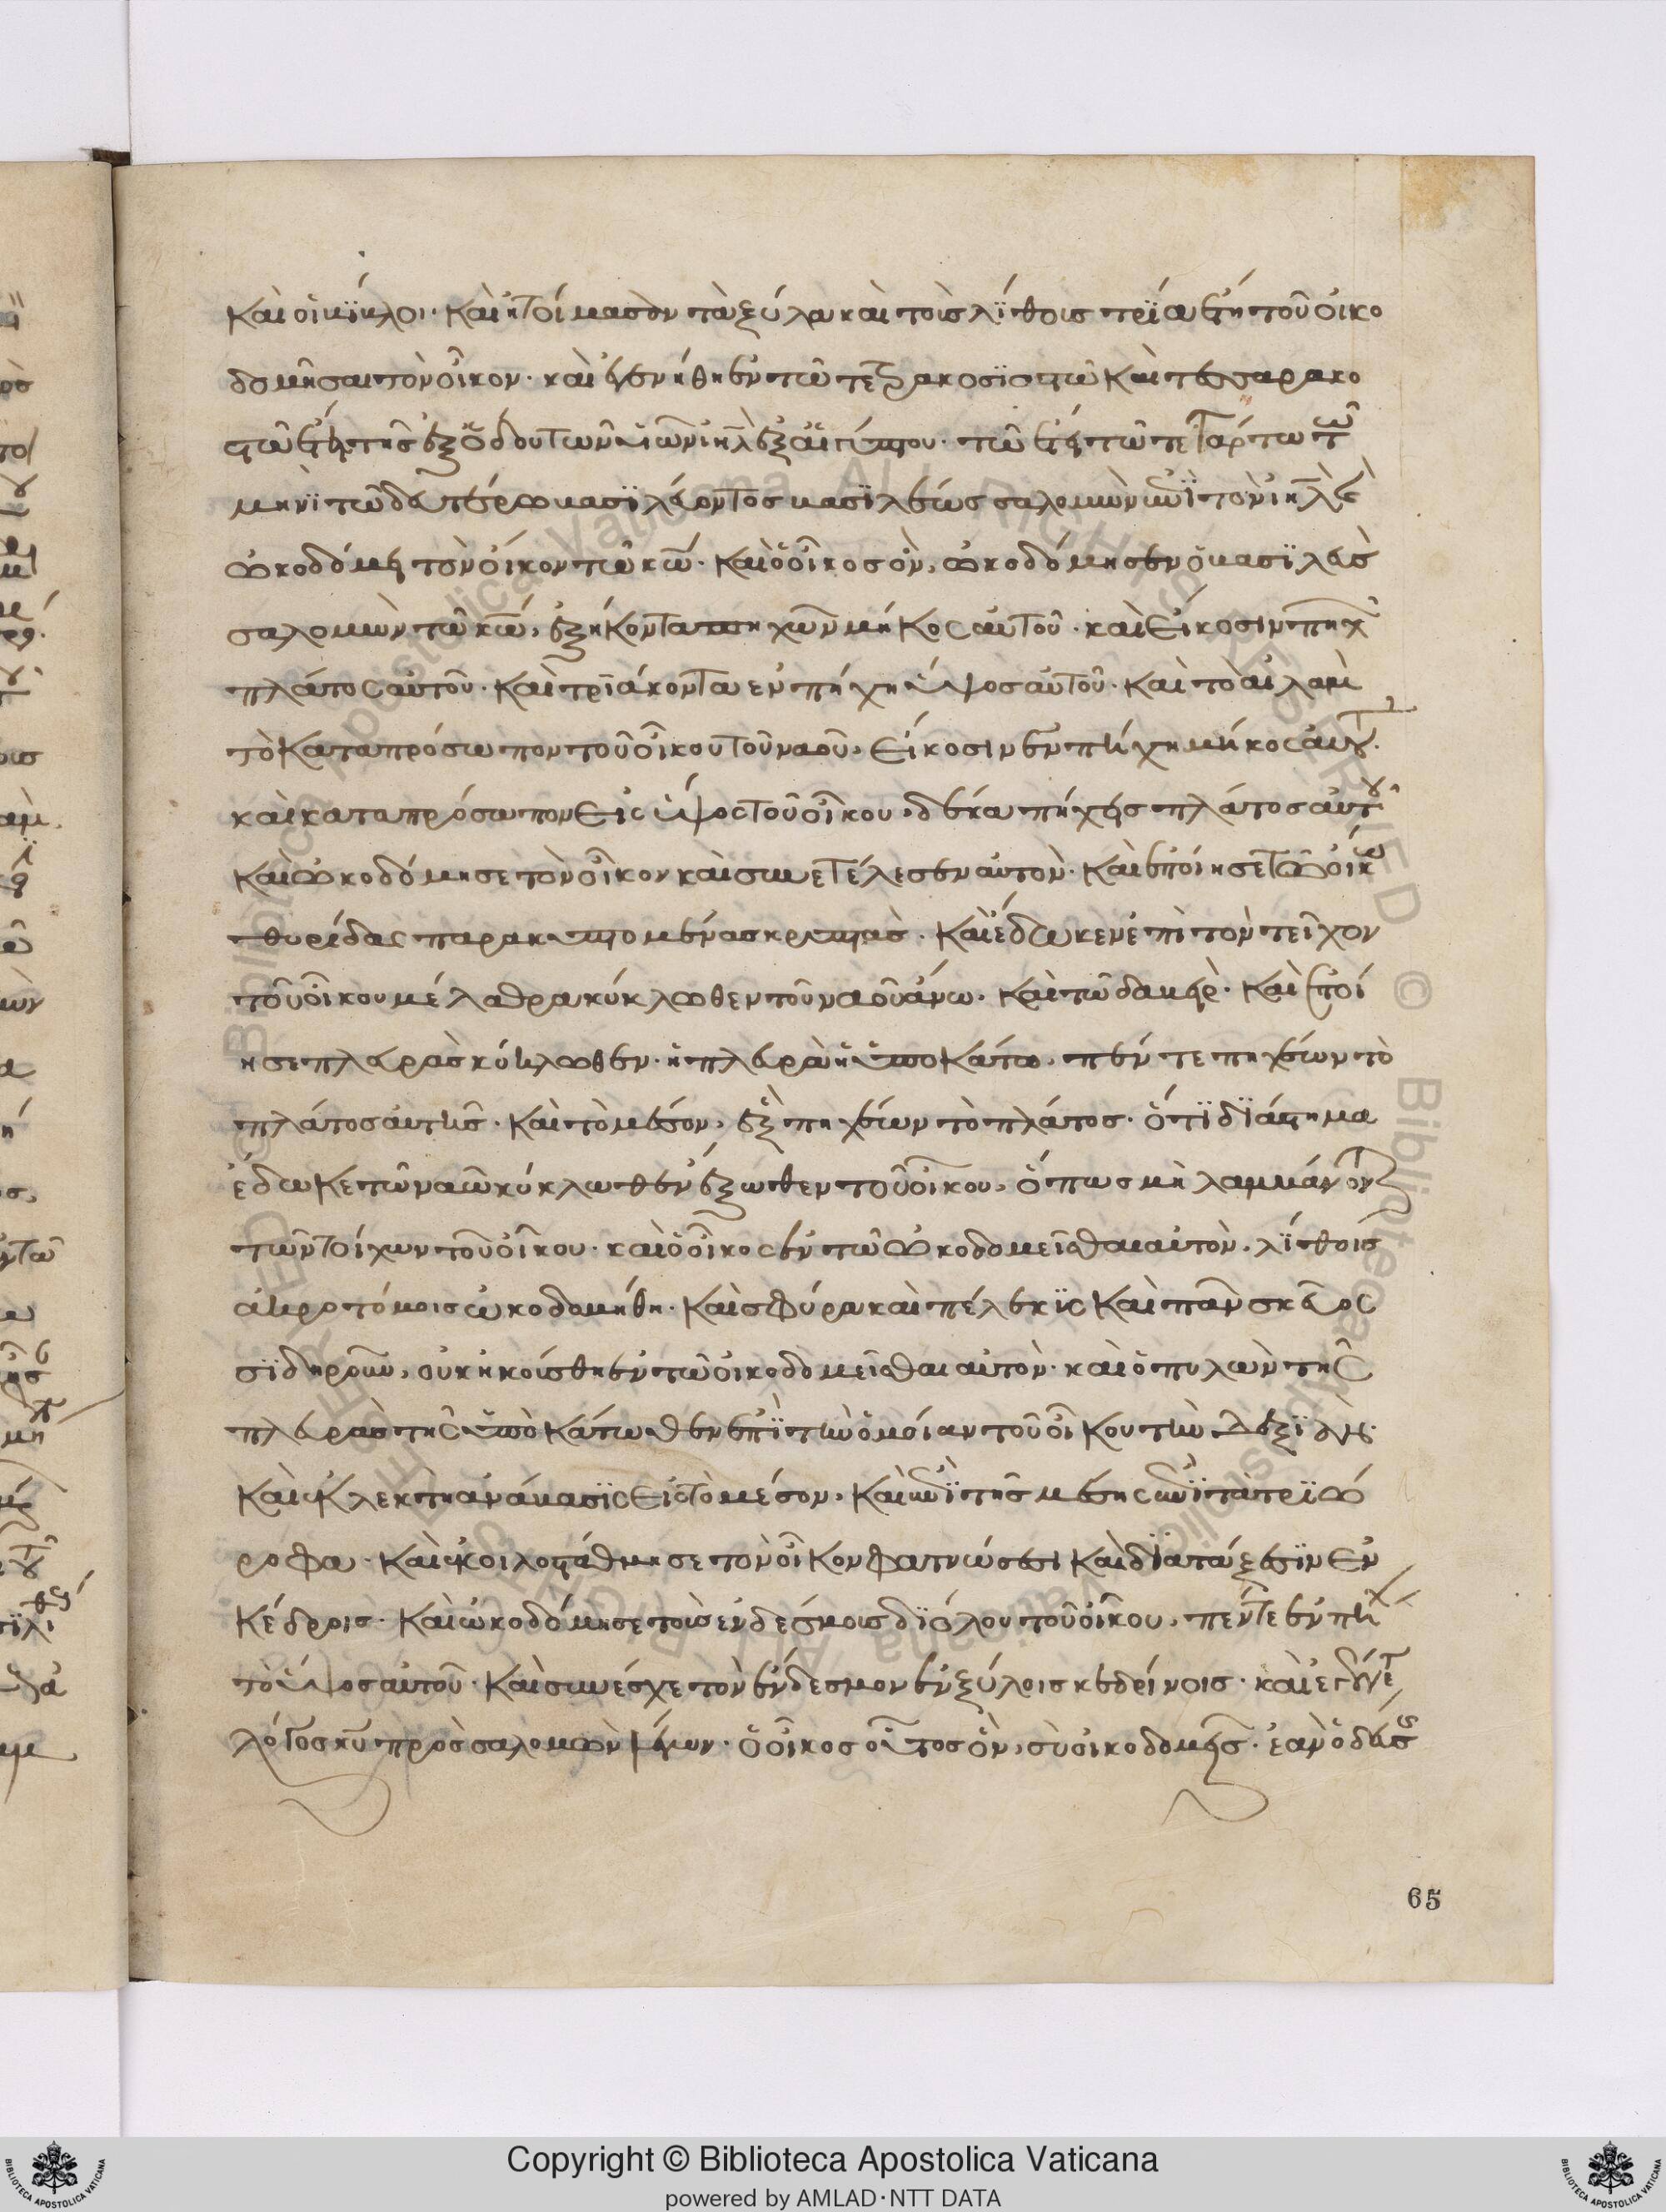 καὶ οἱ βίβλοι· καὶ ἡτοίμασαν τὰ ξύλα καὶ τοὺς λίθους τρία ἔτη τοῦ οἰκο
δομῆσαι τὸν οἶκον· καὶ ἐγενήθη ἐν τῶ τετρακοσιοστῶ καὶ τεσσαρακο
στῶ ἔτει τῆς ἐξόδου τῶν υἱῶν ιηλ ἐξ αἰγύπτου· τῶ ἔτει τῶ τετάρτω τῶ
μηνὶ τῶ δευτέρω βασιλεύοντος βασιλέως σαλομὼν ἐπὶ τὸν ιηλ
ὠκοδόμει τὸν οἶκον τῶ κω· καὶ ὁ οἶκος ὃν, ὠκοδόμησεν ὁ βασιλεὺς
σαλομὼν τῶ κω, ἑξήκοντα πηχῶν μῆκος αὐτοῦ· καὶ εἴκοσιν πηχ
πλάτος αὐτοῦ· καὶ τριάκοντα ἐν πήχη ὕψος αὐτοῦ· καὶ τὸ αἰλαμ
τὸ κατα πρόσωπον τοῦ οἴκου τοῦ ναοῦ, εἴκοσιν ἐν πήχη μῆκος αὐτ
καὶ κατα πρόσωπον εἰς ὕψος τοῦ οἴκου, δέκα πήχεις πλάτος αὐτοῦ
καὶ ὠκοδόμησε τὸν οἶκον καὶ συνετέλεσεν αὐτὸν· καὶ ἐποίησε τῶ οἴκω
θυρίδας παρακυπτομένας κρυπτὰς· καὶ ἔδωκεν ἐπὶ τὸν τεῖχον
τοῦ οἴκου μέλαθρα κύκλωθεν τοῦ ναοῦ ἄνω· καὶ τῶ δαβειρ· καὶ ἐποί
ησε πλευρὰς κύκλωθεν· ἡ πλευρὰ ἡ ὑποκάτω, πέντε πηχέων τὸ
πλάτος αὐτῆς· καὶ τὸ μέσον, ἓξ πηχέων τὸ πλάτος· ὅτι διάστημα
ἔδωκε τῶ ναῶ κύκλωθεν ἔξωθεν τοῦ οἴκου, ὅπως μὴ λαμβάνοντ
τῶν τοίχων τοῦ οἴκου· καὶ ὁ οἶκος ἐν τῶ ὠκοδομεῖσθαι αὐτὸν, λίθοις
ἀκροτόμοις ὠκοδομήθη· καὶ σφύρα καὶ πέλεκις καὶ πᾶν σκεῦος
σιδηροῦν, οὐκ ἠκούσθη ἐν τῶ οἰκοδομεῖσθαι αὐτὸν· καὶ ὁ πυλὼν τῆς
πλευρᾶς τῆς ὑποκάτωθεν ἐπὶ τὴν ὁμοίαν τοῦ οἴκου τὴν δεξιὰν·
καὶ ἑκλεκτὴ ἀνάβασις εἰς τὸ μέσον, καὶ ἐπὶ τῆς μέσης ἐπὶ τὰ τριώ
ροφα· καὶ ἐκοιλοστάθμησε τὸν οἶκον φατνώσει καὶ διατάξεσιν ἐν
κέδροις· καὶ ὠκοδόμησε τοὺς ἐνδέσμους δι ὅλου τοῦ οἴκου, πέντε ἐν πηχ
τὸ ὕψος αὐτοῦ· καὶ συνέσχε τὸν ἔνδεσμον ἐν ξύλοις κεδρίνοις· καὶ ἐγένετ
λόγος κυ πρὸς σαλομὼν λέγων· ὁ οἶκος οὗτος ὃν, σὺ οἰκοδομεῖς· ἐὰν ὁδεύης
65
Copyright © Biblioteca Apostolica Vaticana
powered by AMLAD·NTT DATA